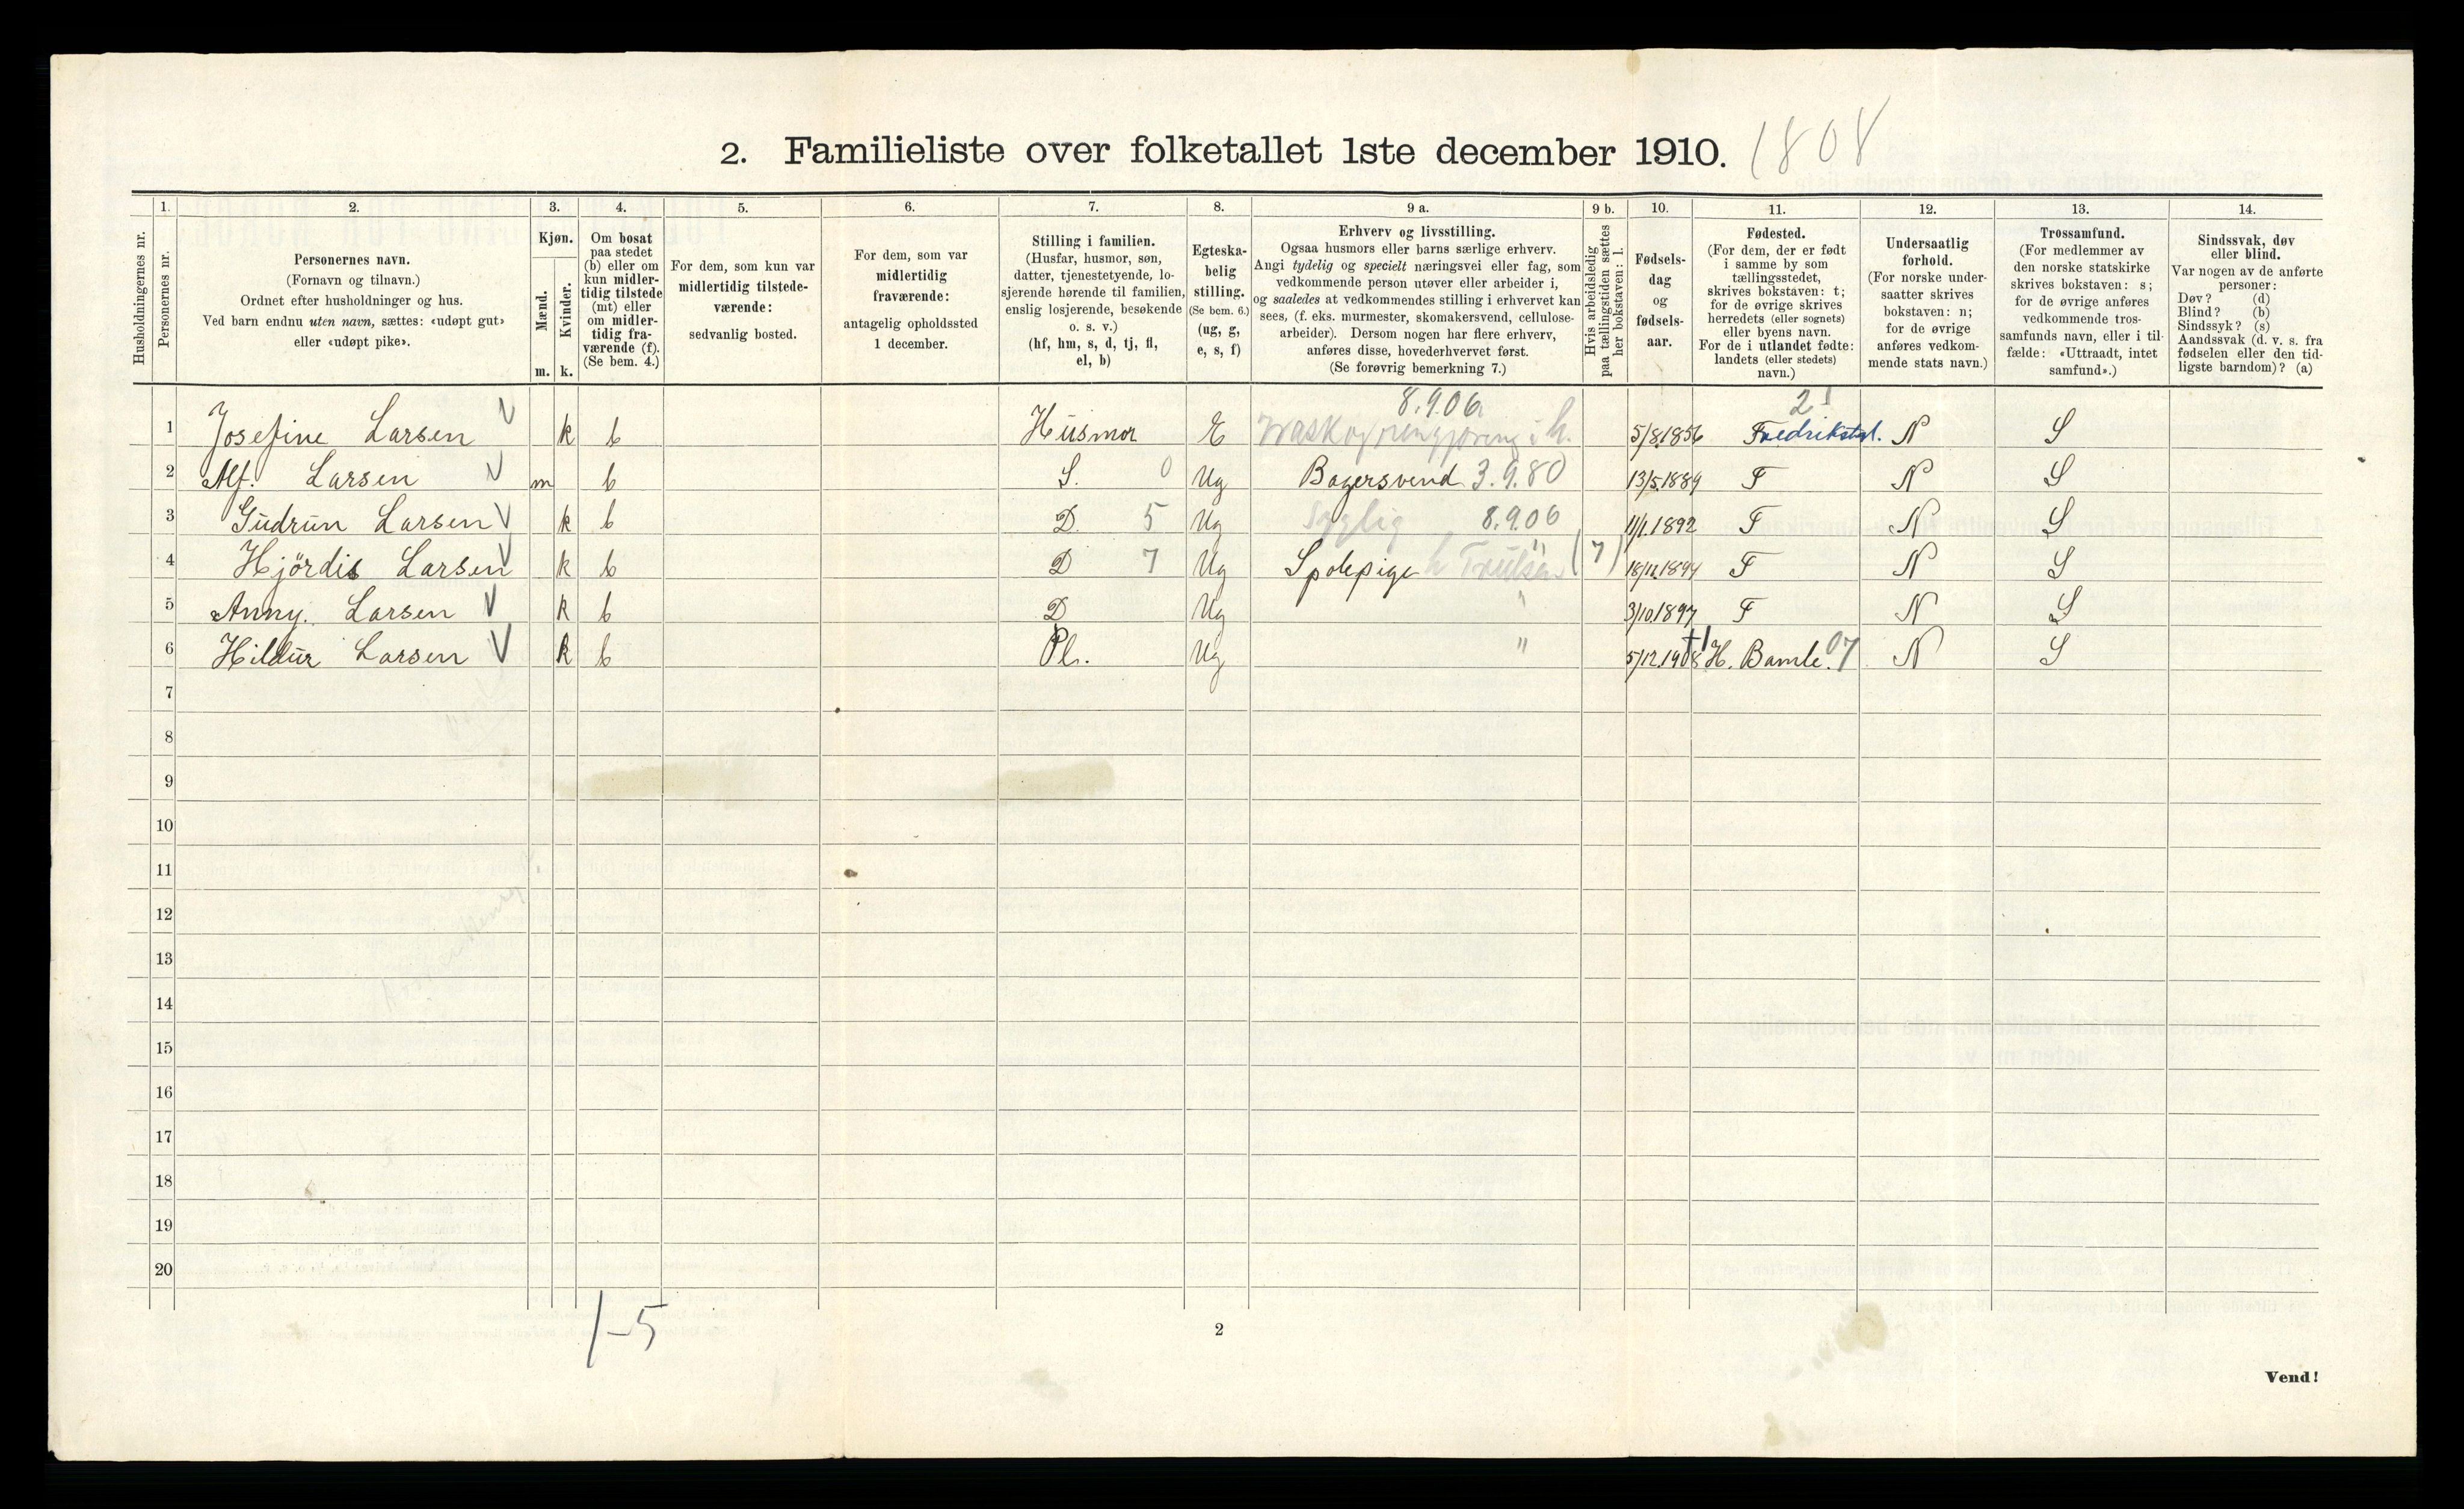 2. Familieliste over folketallet 1ste december 1910. 1808
Husholdningernes nr.
1. Personernes nr.
2. Personernes navn.
(Fornavn og tilnavn.)
Ordnet efter husholdninger og hus.
Ved barn endnu uten navn, sættes: «udøpt gut»
eller «udøpt pike».
3. Kjøn.
Mænd. m.
Kvinder. k.
4. Om bosat
paa stedet
(b) eller om
kun midler-
tidig tilstede
(mt) eller
om midler-
tidig fra-
værende (f).
(Se bem. 4.)
5. For dem, som kun var
midlertidig tilstede-
værende:
sedvanlig bosted.
6. For dem, som var
midlertidig
fraværende:
antagelig opholdssted
1 december.
7. Stilling i familien.
(Husfar, husmor, søn,
datter, tjenestetyende, lo-
sjerende hørende til familien,
enslig losjerende, besøkende
o. s. v.)
(hf, hm, s, d, tj, fl,
el, b)
8. Egteska-
belig
stilling.
(Se bem. 6.)
(ug, g,
e, s, f)
9 a. Erhverv og livsstilling.
Ogsaa husmors eller barns særlige erhverv.
Angi tydelig og specielt næringsvei eller fag, som
vedkommende person utøver eller arbeider i,
og saaledes at vedkommendes stilling i erhvervet kan
sees, (f. eks. murmester, skomakersvend, cellulose-
arbeider). Dersom nogen har flere erhverv,
anføres disse, hovederhvervet først.
(Se forøvrig bemerkning 7.)
9 b. Hvis arbeidsledig
paa tællingstiden sættes
her bokstaven: l.
10. Fødsels-
dag
og
fødsels-
aar.
11. Fødested.
(For dem, der er født
i samme by som
tællingsstedet,
skrives bokstaven: t;
for de øvrige skrives
herredets (eller sognets)
eller byens navn.
For de i utlandet fødte:
landets (eller stedets)
navn.)
12. Undersaatlig
forhold.
(For norske under-
saatter skrives
bokstaven: n;
for de øvrige
anføres vedkom-
mende stats navn.)
13. Trossamfund.
(For medlemmer av
den norske statskirke
skrives bokstaven: s;
for de øvrige anføres
vedkommende tros-
samfunds navn, eller i til-
fælde: «Uttraadt, intet
samfund».)
14. Sindssvak, døv
eller blind.
Var nogen av de anførte
personer:
Døv? (d)
Blind? (b)
Sindssyk? (s)
Aandssvak (d. v. s. fra
fødselen eller den tid-
ligste barndom)? (a)
8.9.06 2
1 Josefine Larsen k b Husmor E Vask og rengjøring i h. 5/8.1856 Fredrikstd. N S
2 Alf. Larsen m b S. 0 Ug Bagersvend 3.9.80 13/5.1889 F N S
3 Gudrun Larsen k b D. 5 Ug Syglig 8.9.06 11/1.1892 F N S
4 Hjördis Larsen k b D 7 Ug Spolepige (7) 18/11.1894 F N S
5 Anny. Larsen k b D Ug " 3/10.1897 F N S
6 Hildur Larsen k b Pl. Ug " 5/12.1908 H. Bamle. 07 N S
7
8
9
10
11
12
13
14
15
16
17
18
19
20
1-5
2
Vend!